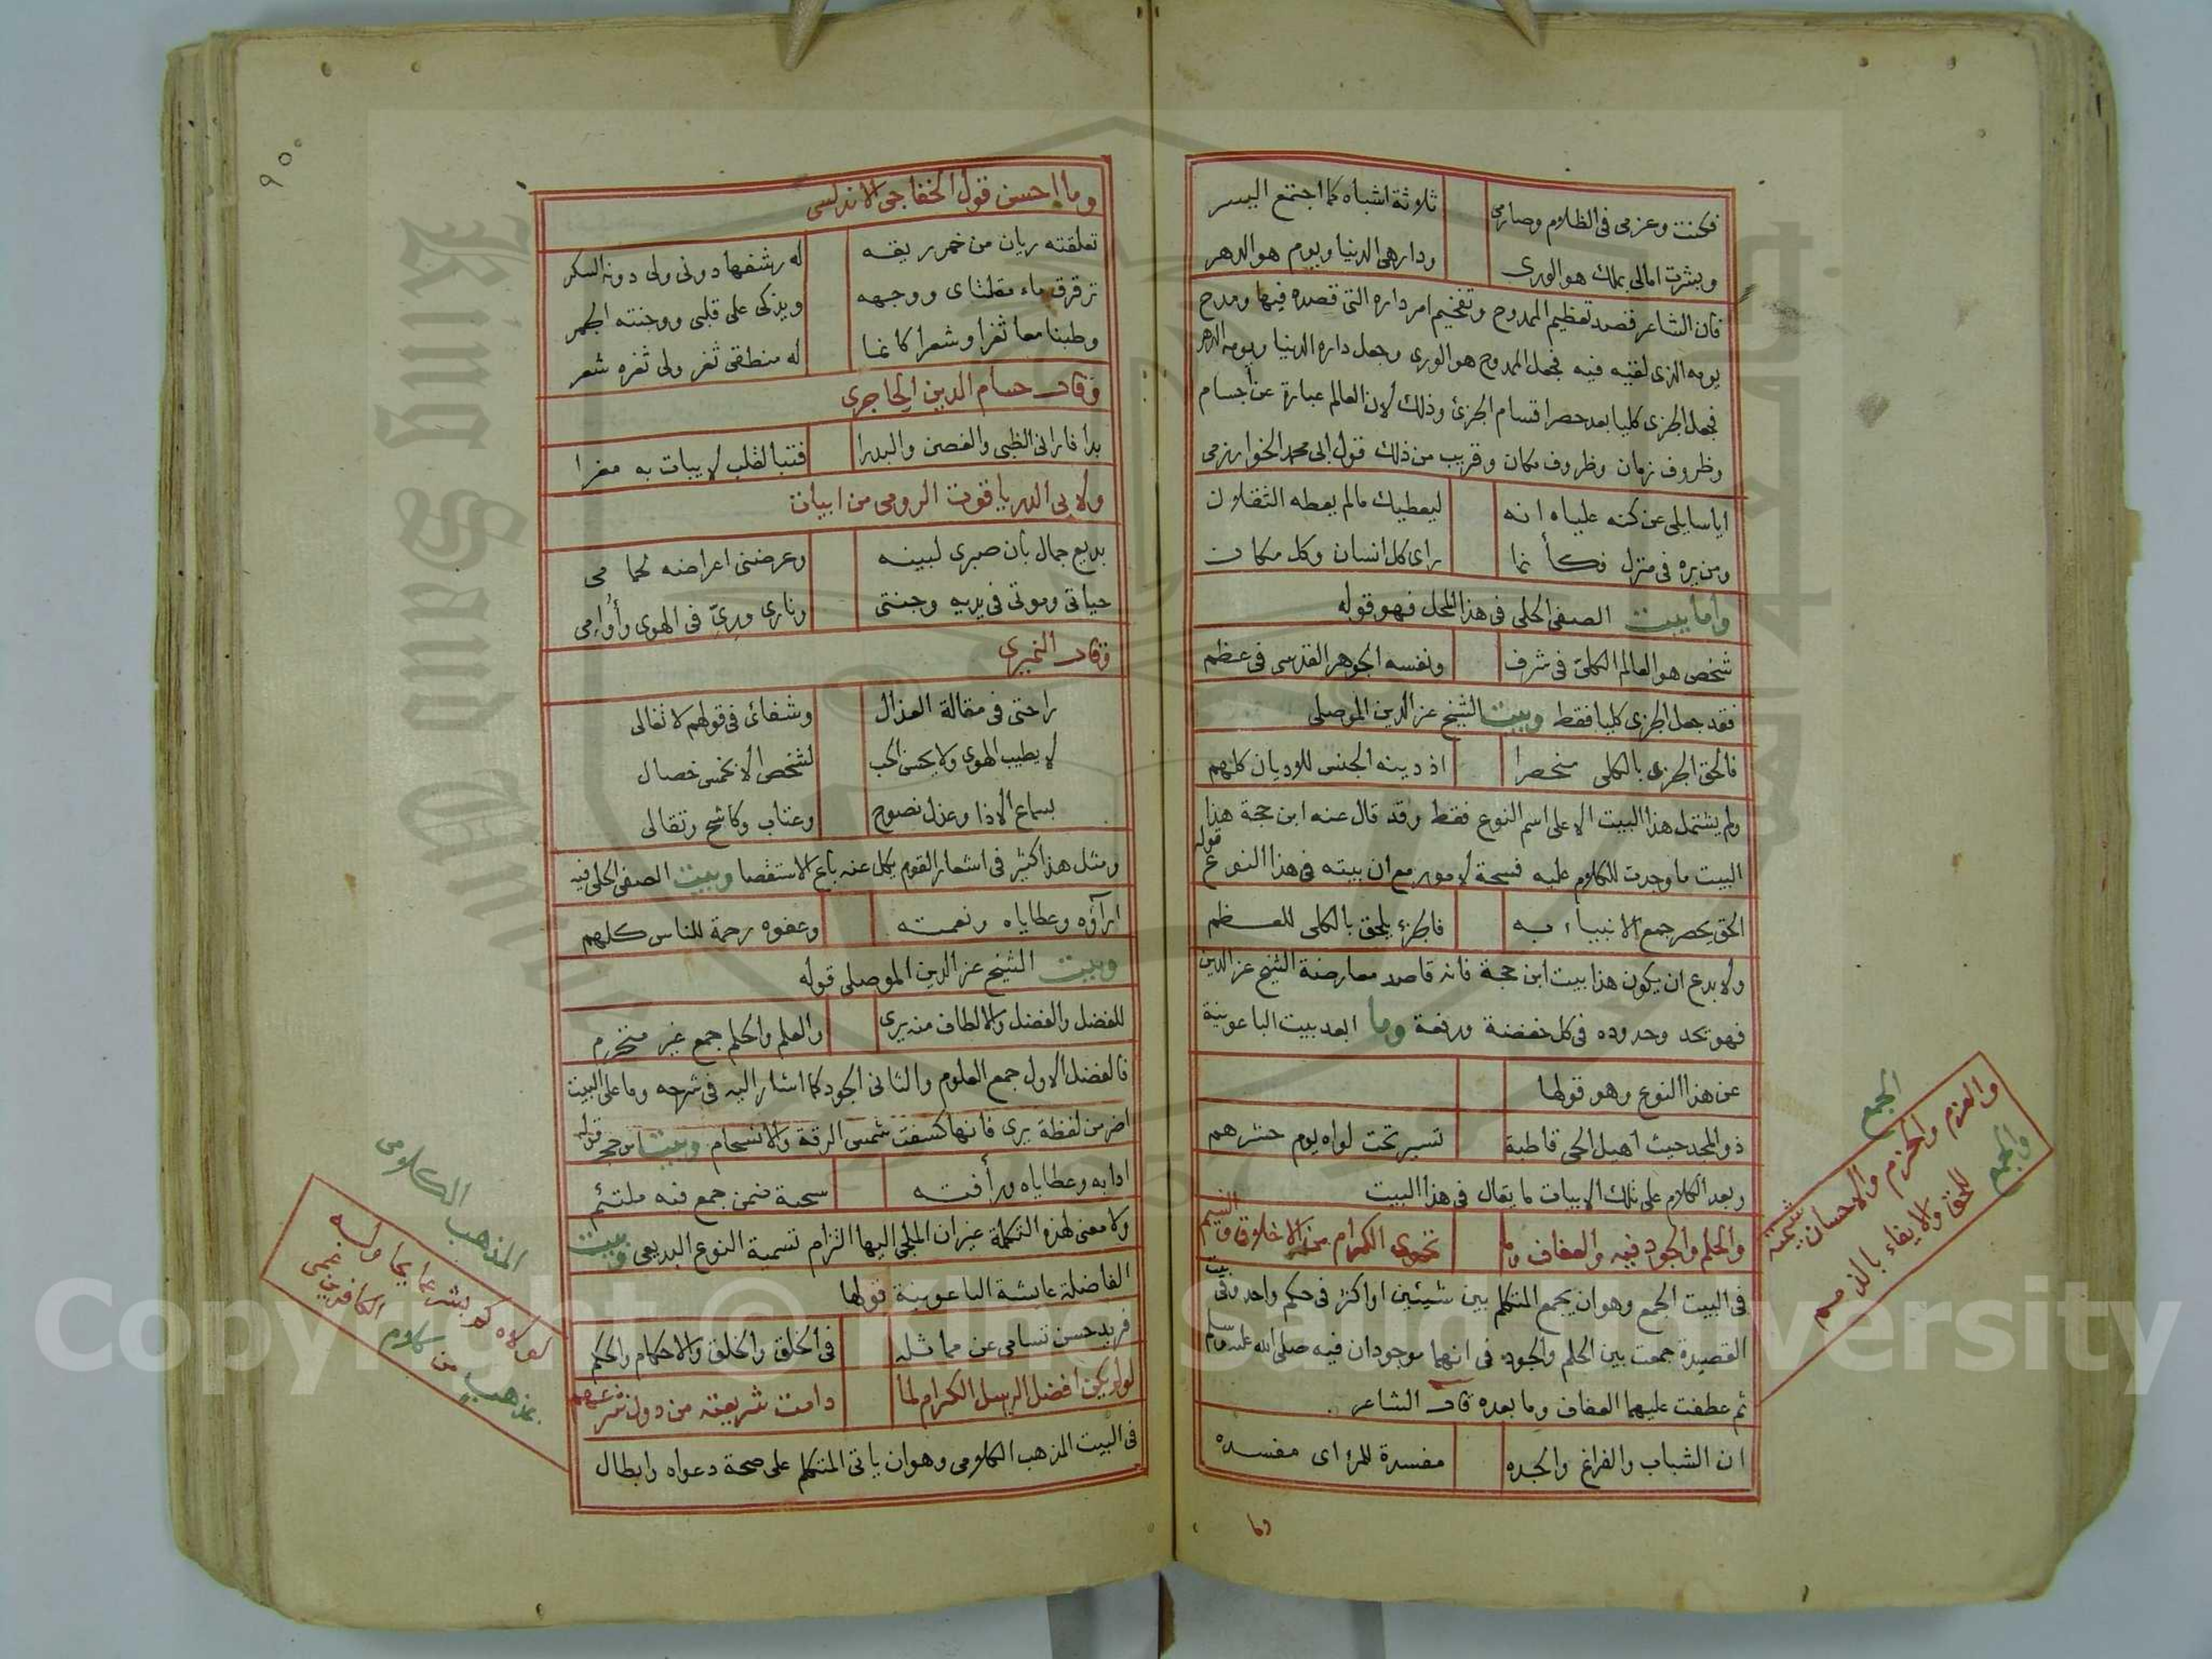 فكنت وعزمي في الظلام وصارمي ثلاثة اشباه كما اجتمع النسر
وبشرت امالي بملك هو الورى ودار هي الدنيا ويوم هو الدهر
فان الشاعر قصد تعظيم الممدوح وتفخيم امر داره التي قصده فيها ومدح
يومه الذي لقيه فيه فجعل الممدوح هو الورى وجعل داره الدنيا ويومه الدهر
فجعل الجزئ كليا بعد حصر اقسام الجزئ وذلك لان العالم عبارة عن اجسام
وظروف زمان وظروف مكان وقريب من ذلك قول ابي محمد الخوارزمي
ايا سايلي عن كنه علياه انه ليعطيك مالم يعطه الثقلان
ومن يره في منزل فكأنما راى كل انسان وكل مكان
واما بيت الصفي الحلي في هذا المحل فهو قوله
شخص هو العالم الكلي في شرف ونفسه الجوهر القدسي في عظم
فقد جعل الجزئ كليا فقط وبيت الشيخ عز الدين الموصلي
فالحق الجزئ بالكلي منحصرا اذ دينه الجنس للاديان كلهم
ولم يشتمل هذا البيت الا على اسم النوع فقط وقد قال عنه ابن حجة هذا
البيت ما وجدت للكلام عليه فسحة لامور مع ان بيته في هذا النوع قوله
الحق بحصر جمع الانبياء به فالجزء يلحق بالكلي للعظم
ولا بدع ان يكون هذا بيت ابن حجة فانه قاصد معارضة الشيخ عز الدين
فهو تحد وحدوده في كل خفضة ورفعة وما ابعد بيت الباعونية
عن هذا النوع وهو قولها
ذو المجد حيث اهيل الحي قاطبة تسير تحت لواه يوم حشرهم
وبعد الكلام على تلك الابيات ما يقال في هذا البيت
والحلم والجود فيه والعفاف وما تحوى الكرام من الاخلاق والشيم
في البيت الجمع وهو ان يجمع المتكلم بين شيئين او اكثر في حكم واحد وفي بيت
القصيدة جمعت بين الحلم والجود في انهما موجودان فيه صلى الله عليه وسلم
ثم عطفت عليهما العفاف وما بعده قال الشاعر
ان الشباب والفراغ والجده مفسدة للمرء اى مفسده
وما
الجمع
والعزم والحزم والاحسان شيمته
والجمع للحق والايفاء بالذمم
٩٥
وما احسن قول الخفاجي الاندلسي
تعلقته ريان من خمر ريقه له رشفها دوني ولي دونه السكر
ترقرق ماء مقلتاى ووجهه ويذكى على قلبي ووجنته الجمر
وطبنا معا ثغرا وشعرا كانما له منطقي ثغر ولي ثغره شعر
وقال حسام الدين الحاجري
بدا فاراني الظبي والغصن والبدرا فتبا لقلب لا يبات به مغرا
ولابي الدر ياقوت الرومي من ابيات
بديع جمال بان صبري لبينه وعرضني اعراضه لحمامي
حياتي وموتي في يديه وجنتي وناري وريي في الهوى وأوامي
وقال النميري
راحتي في مقالة العذال وشفائ في قولهم لا تغالى
لا يطيب الهوى ولا يحسن الحب لشخص الا بخمس خصال
بسماع الاذا وعذل نصوح وعتاب وكاشح وتقالى
ومثل هذا كثير في اشعار القوم يكل عنه باع الاستقصا وبيت الصفي الحلي فيه
اراؤه وعطاياه ونعمته وعفوه رحمة للناس كلهم
وبيت الشيخ عز الدين الموصلي قوله
للفضل والفضل والالطاف منه يرى والعلم والحلم جمع غير منخرم
فالفضل الاول جمع العلوم والثاني الجود كما اشار اليه في شرحه وما على البيت
اضر من لفظة يرى فانها كسفت شمس الرقة والانسجام وبيت ابن حجة قوله
ادابه وعطاياه ورأفته سحبة ضمن جمع فيه ملتئم
ولا معنى لهذه التكملة غير ان الملجي اليها التزام تسمية النوع البديعي وبيت
الفاضلة عايشة الباعونية قولها
فريد حسن تسامى عن مماثله في الخلق والخلق والاحكام والحكم
لو لم يكن افضل الرسل الكرام لما دامت شريعته من دون شرعهم
في البيت المذهب الكلامي وهو ان ياتي المتكلم على صحة دعواه وابطال
المذهب الكلامي
لولاه كم بشر عما يحاوله
بمذهب من كلام الكافرين عمى